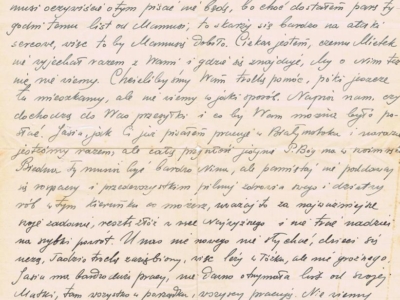 musi oczywiście o tym pisać nie będę, bo choć dostałam parę ty
godni temu list od Mamusi, to skarży się bardzo na ataki
sercowe, więc to by Mamusię dobiło. Ciekaw jestem, czemu Mietek
nie wyjechał razem z Wami i gdzie się znajduje, My o Nim też
nic nie wiemy. Chcielibyśmy Wam trochę pomóc, póki jeszcze
tu mieszkamy, ale nie wiemy w jaki sposób. Napisz nam, czy
dochodzą do Was przesyłki i co by Wam można było po
słać. Jasia, jak Ci już pisałem pracuje w Białymstoku i narazie
jesteśmy razem, ale całą przyszłość jedynie P. Bóg ma w swoim
Biedna ty musisz być bardzo Nina, ale pamiętaj nie poddawaj
się rozpaczy i przedewszystkim pilnuj zdrowia swego i dziatwy
rób w tym kierunku co możesz, uważaj to za najważniejsze
swoje zadanie, resztę złóż w ręce Najwyższego i nie trać nadziei
na szybki powrót. U nas nic nowego nie słychać, dzieci są
trochę, więc leży w łóżku, ale nic groźnego.
Jasia ma bardzo dużo pracy, nie dawno otrzymała list od swojej
Matki, tam wszystko w porządku, wszyscy pracują. Nie wiemy